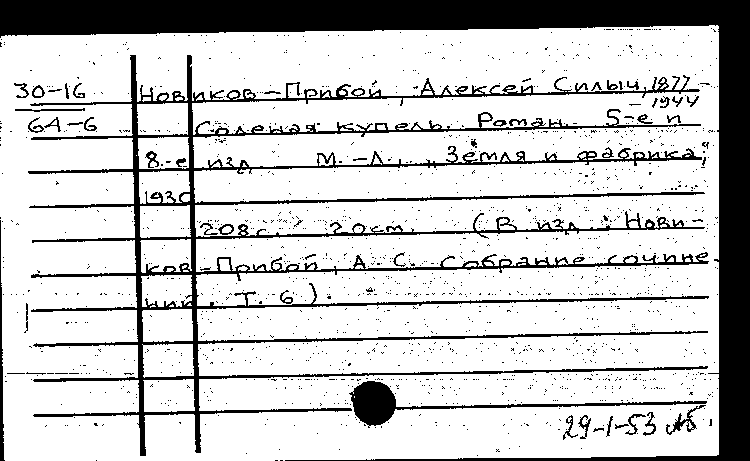 30-16
Новиков-Прибой, Алексей Силыч, 1877-
-1944
64-6
Соленая купель. Роман. 5-е и
8.-е изд. М.-Л., „Земля и фабрика;"
1930
208 с. 20 см. (В изд.: Нови-
ков-Прибой, А. С. Собрание сочине-
ний. Т. 6).
29-1-53